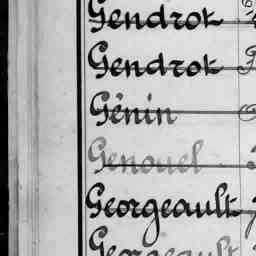 Gendrot
Gendrot
Génin
Genouel
Georgeault
Georgeault